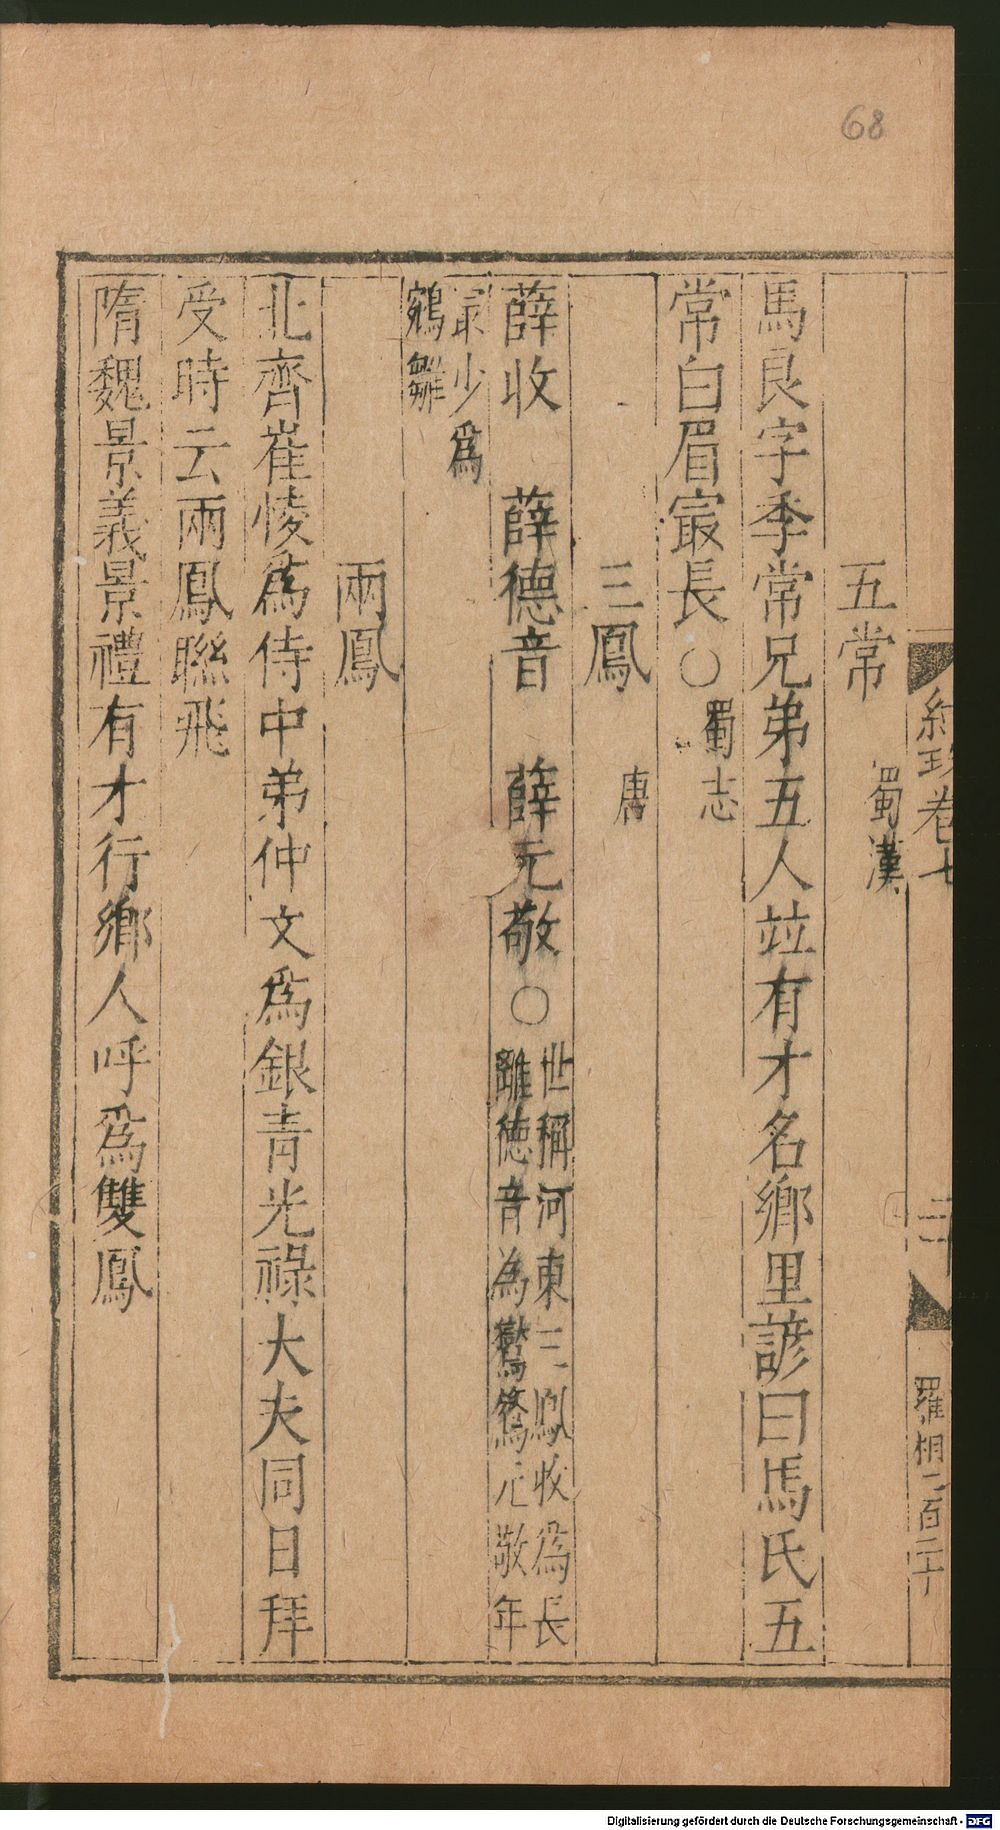 68
五常　蜀漢
馬良字季常兄弟五人竝有才名鄉里諺曰馬氏五
常白眉㝡長○蜀志
三鳳　唐
薛收　薛德音　薛元敬○世稱河東三鳳收爲長
離德音為鸑鷟元敬年
㝡少爲
鵷雛
兩鳳
北齊崔㥄爲侍中弟仲文爲銀青光祿大夫同日拜
受時云兩鳳聯飛
隋魏景義景禮有才行鄉人呼爲雙鳳
卷七
羅相二百三十
Digitalisierung gefördert durch die Deutsche Forschungsgemeinschaft - DFG